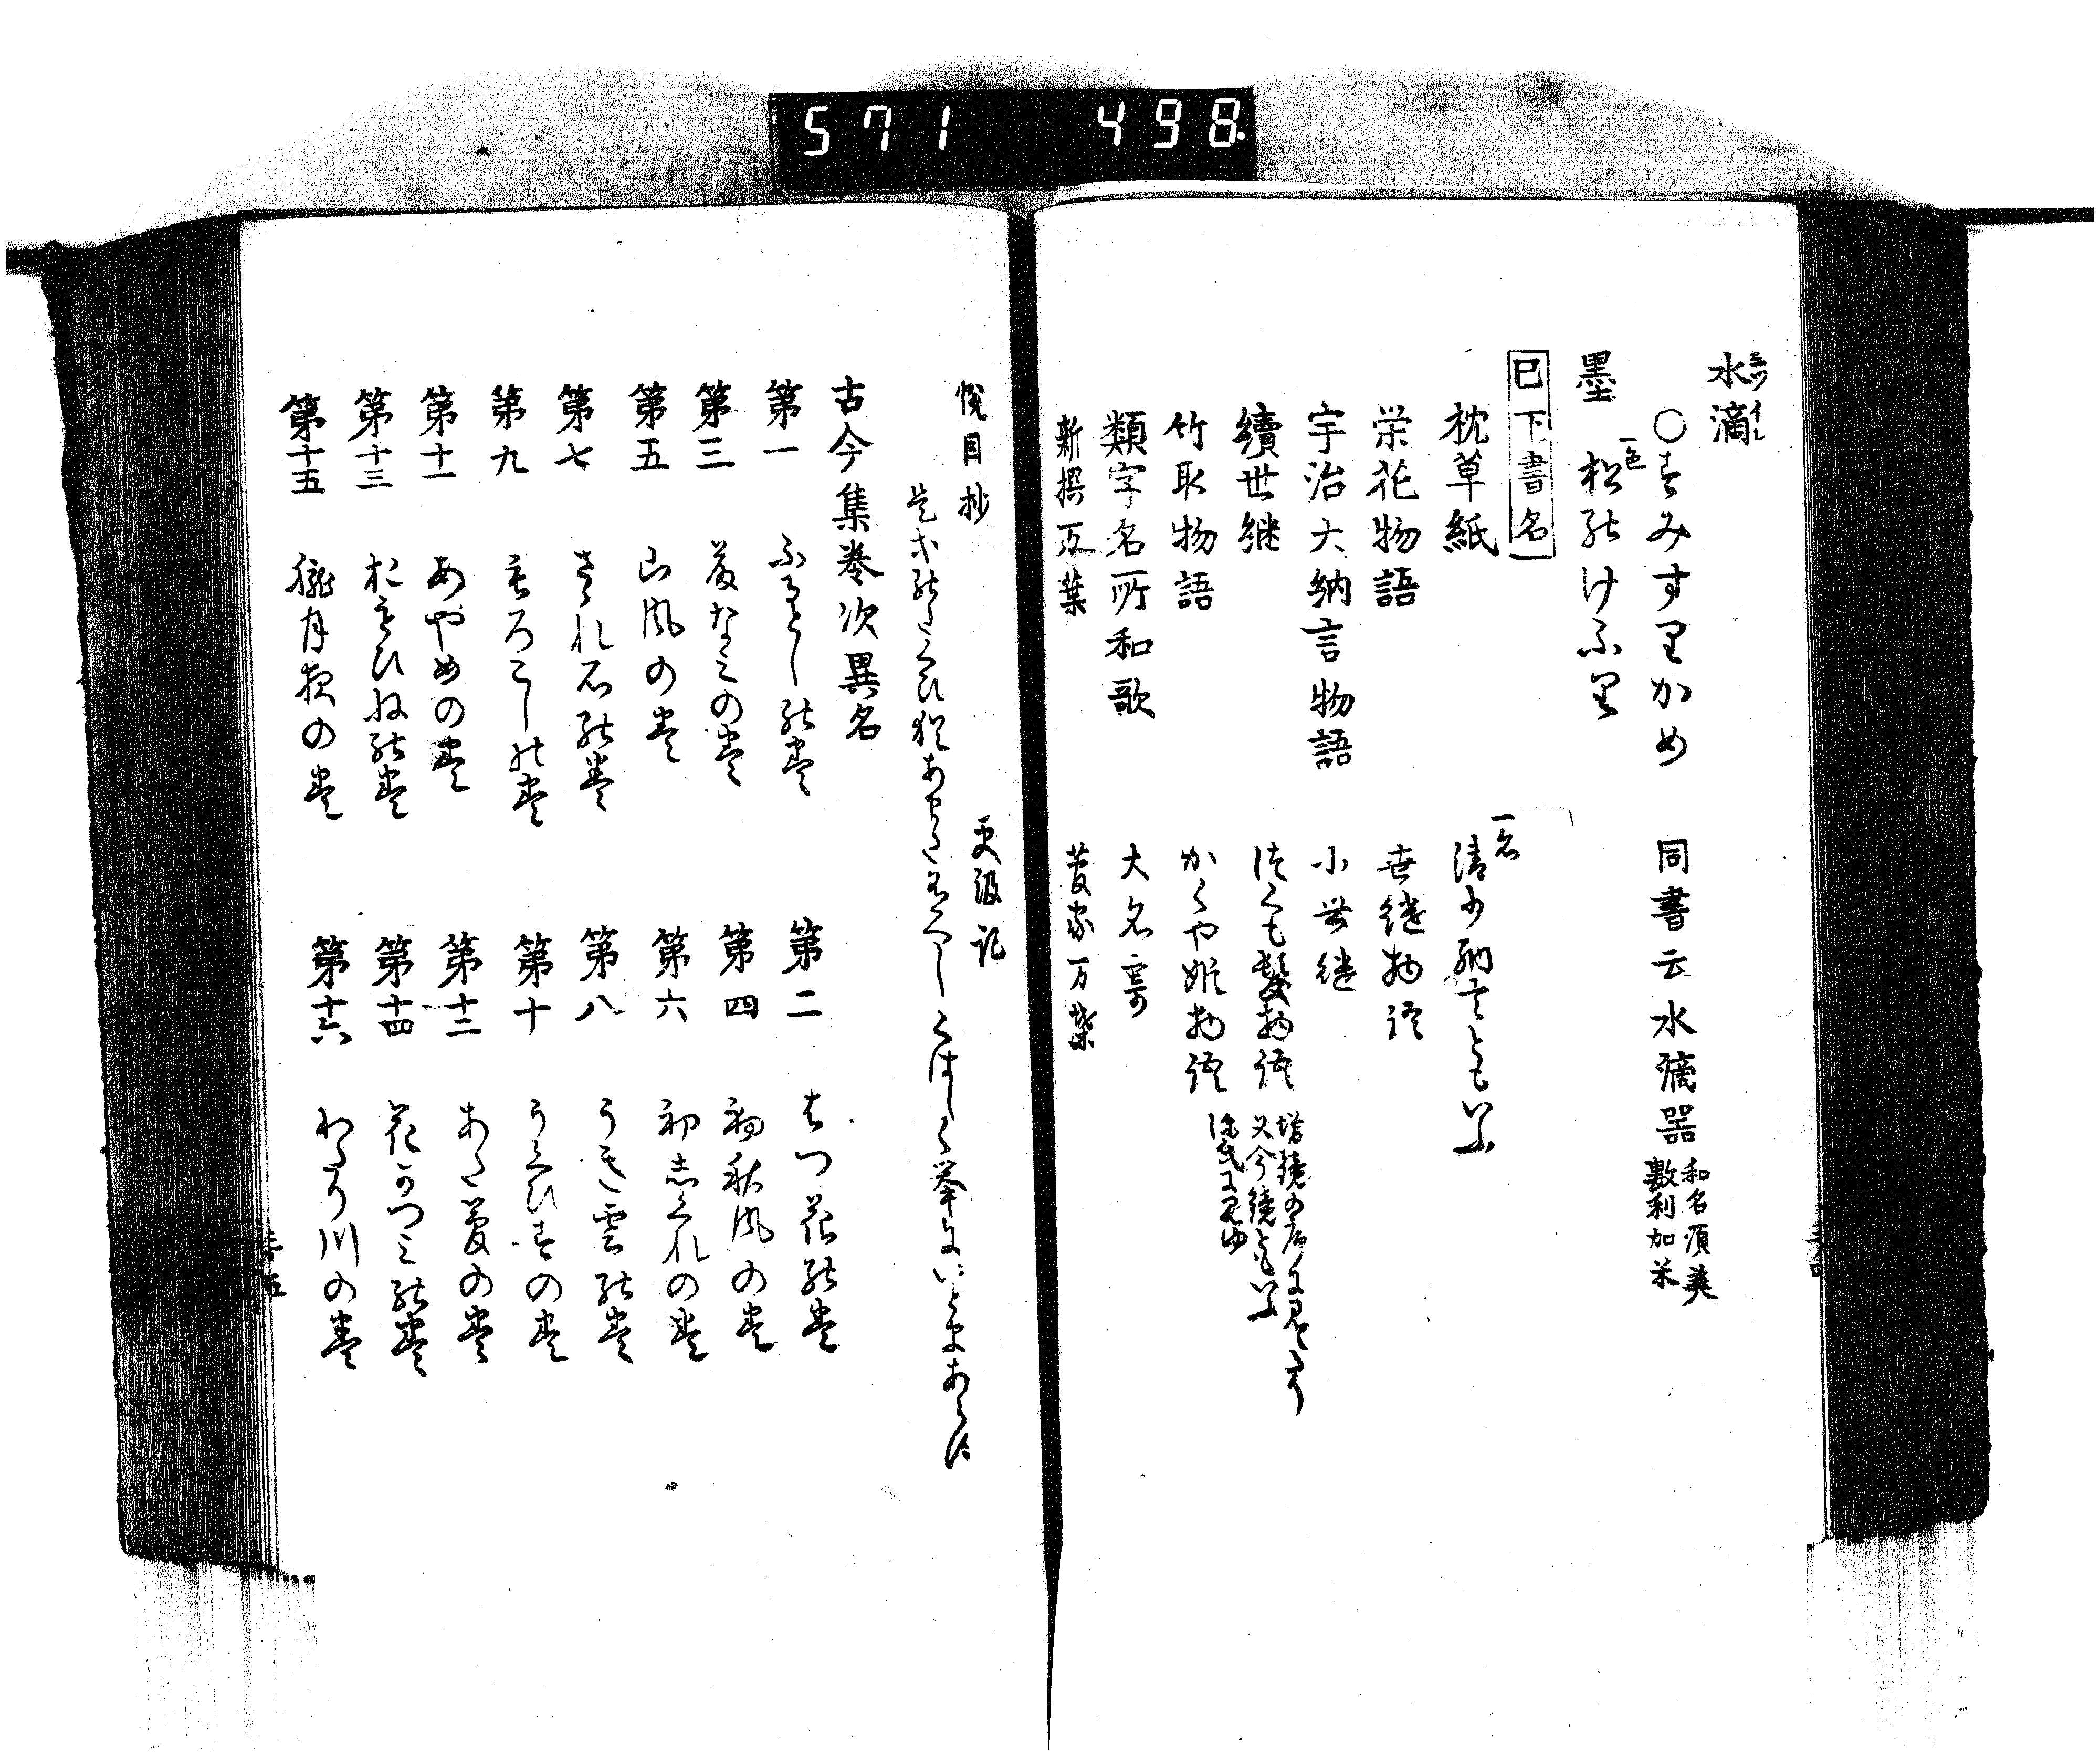 571 498
水滴
○すみすりかめ 同書云水滴器 和名須美
數利加米
墨 松のけふり
一名
巳下書名
枕草紙 清少納言ともいふ
一名
栄花物語 世継物語
宇治大納言物語 小世継
續世継 つくも髪物語 増鏡の序に見えたり
又今鏡ともいふ
竹取物語 かくや姫物語 源氏に見ゆ
類字名所和歌 大名寄
新撰万葉 菅家万葉
悦目抄 更級記
古今集巻次異名
第一 ふるとしの巻 第二 はつ花の巻
第三 藤なみの巻 第四 初秋風の巻
第五 山風の巻 第六 初しくれの巻
第七 さゝれ石の巻 第八 うき雲の巻
第九 もろこしの巻 第十 うくひすの巻
第十一 あやめの巻 第十二
第十三 おもひねの巻 第十四 花かつみの巻
第十五 朧月夜の巻 第十六 わたり川の巻